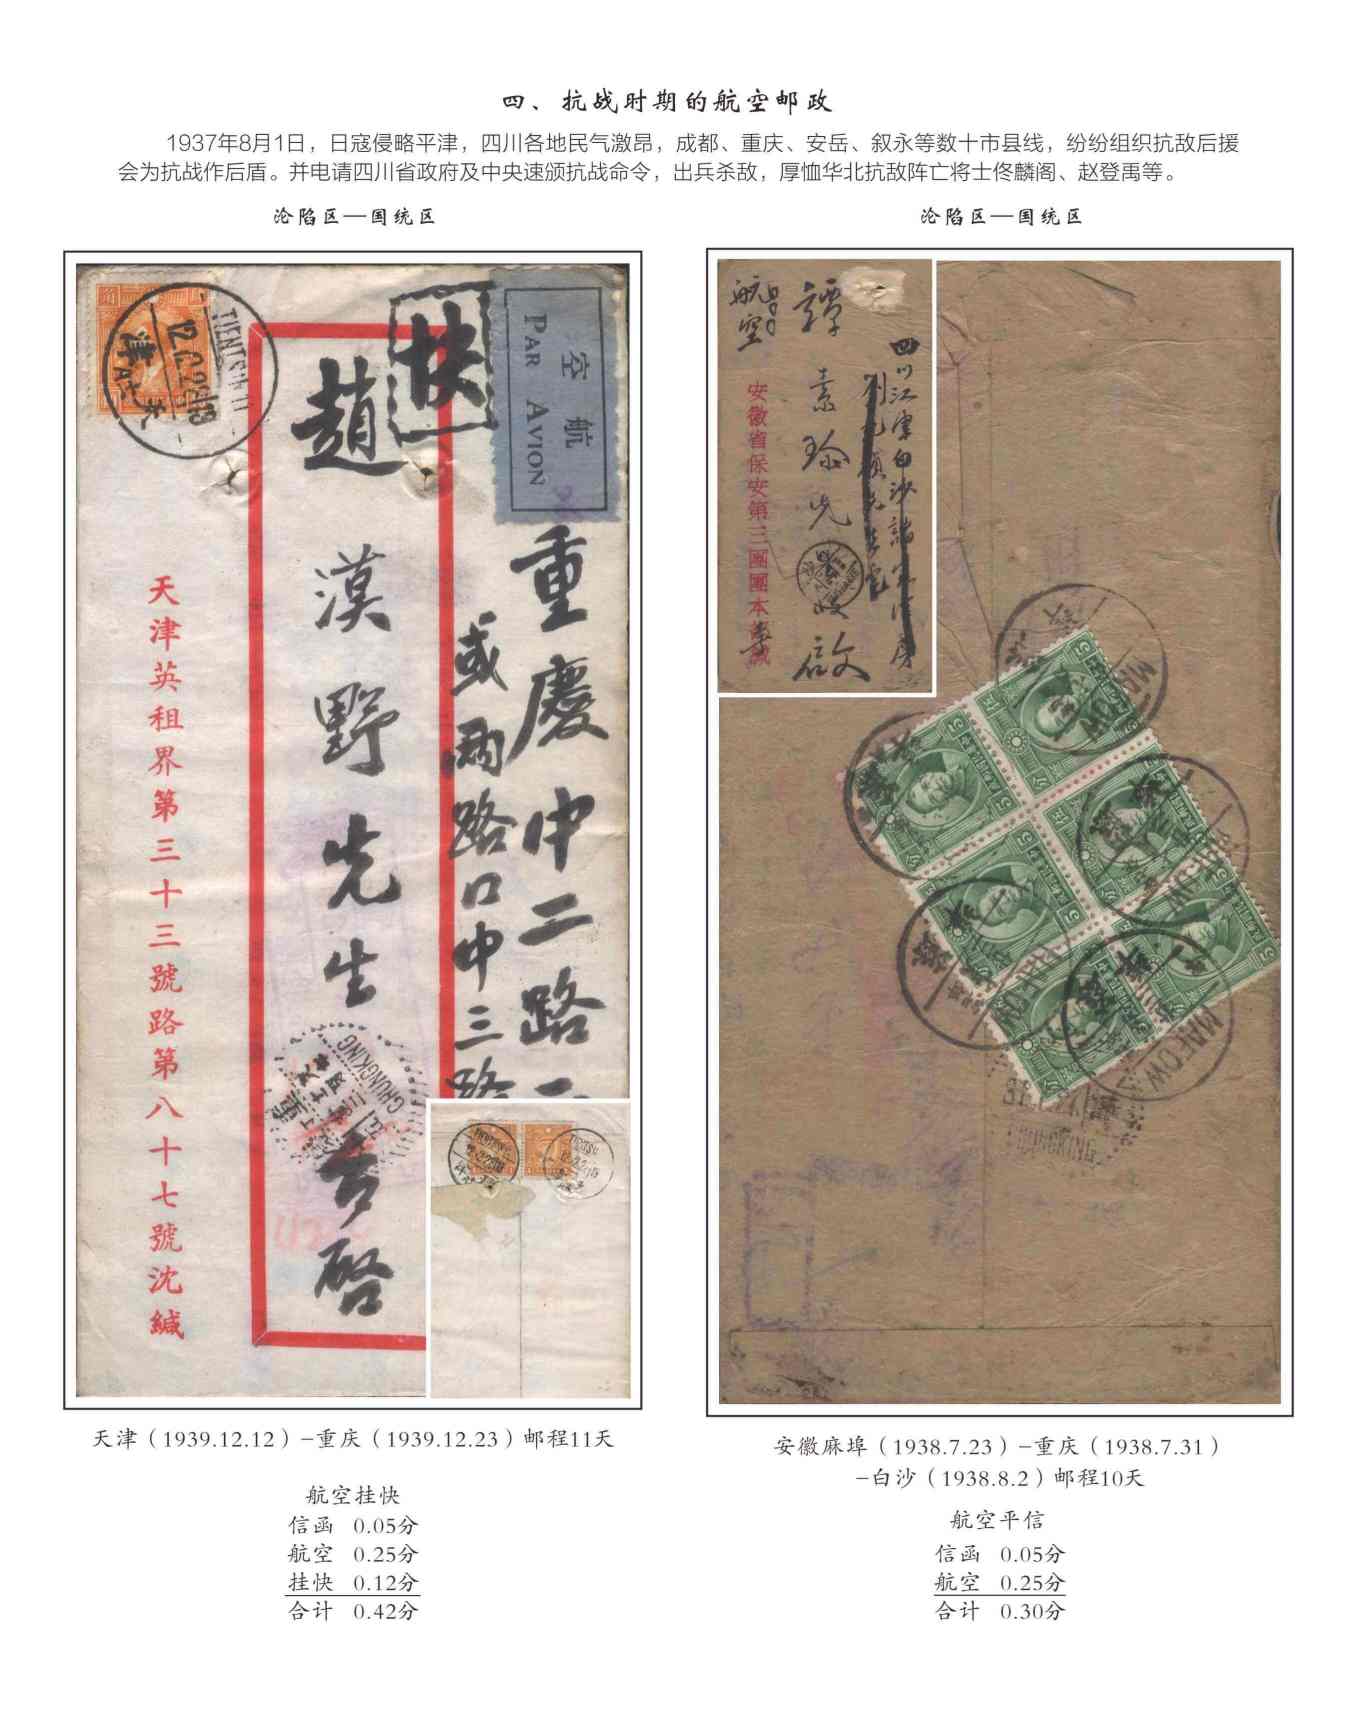 四、抗战时期的航空邮政
1937年8月1日，日寇侵略平津，四川各地民气激昂，成都、重庆、安岳、叙永等数十市县线，纷纷组织抗敌后援
会为抗战作后盾。并电请四川省政府及中央速颁抗战命令，出兵杀敌，厚恤华北抗敌阵亡将士佟麟阁、赵登禹等。
沦陷区—国统区
TIENTSIN
快
航空
PAR AVION
重慶中二路
或兩路口中三路
趙漢野先生台啓
天津英租界第三十三號路第八十七號沈緘
CHUNGKING
天津（1939.12.12）-重庆（1939.12.23）邮程11天
航空挂快
信函 0.05分
航空 0.25分
挂快 0.12分
合计 0.42分
沦陷区—国统区
航空
四川江津白沙
譚素瑜先
啟
安徽省保安第三團團本部緘
CHUNGKING
安徽麻埠（1938.7.23）-重庆（1938.7.31）
-白沙（1938.8.2）邮程10天
航空平信
信函 0.05分
航空 0.25分
合计 0.30分